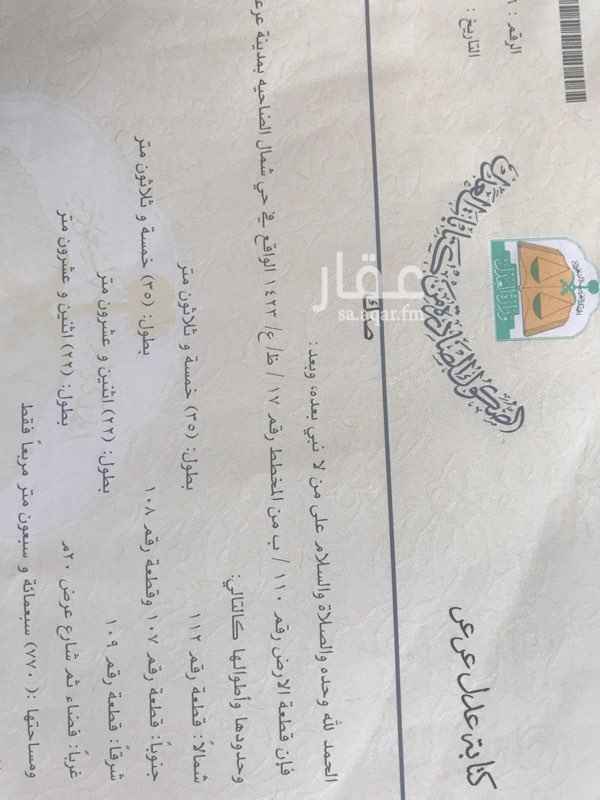 الرقم :
التاريخ :
وزارة العدل
كتابة عدل عرعر
صك
عقار
sa.aqar.fm
الحمد لله وحده والصلاة والسلام على من لا نبي بعده، وبعد:
فإن قطعة الارض رقم ١١٠ / ب من المخطط رقم ١٧ / ظ/ ع/ ١٤٢٣ الواقع في حي شمال الضاحيه بمدينة
وحدودها وأطوالها كالتالي:
شمالاً: قطعة رقم ١١٢ بطول: (٣٥) خمسة و ثلاثون متر
جنوباً: قطعة رقم ١٠٧ وقطعة رقم ١٠٨ بطول: (٣٥) خمسة و ثلاثون متر
شرقاً: قطعة رقم ١٠٩ بطول: (٢٢) اثنين و عشرون متر
غرباً: فضاء ثم شارع عرض ٢٠م بطول: (٢٢) اثنين و عشرون متر
ومساحتها :( ٧٧٠) سبعمائة و سبعون متر مربعاً فقط